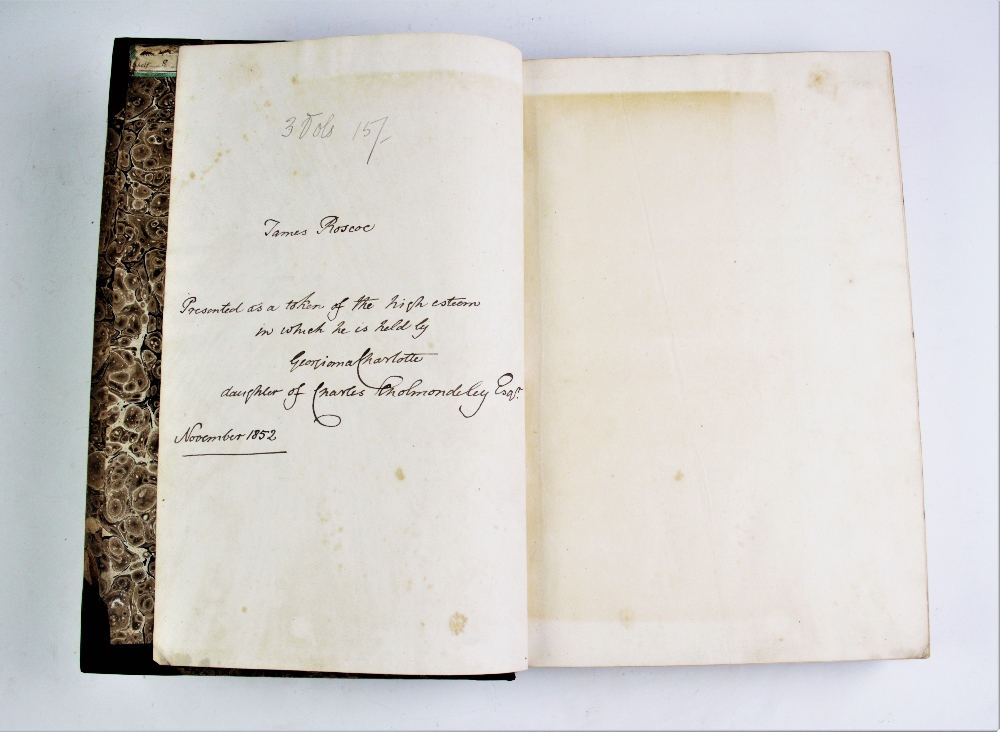 3 Vols 15/-
James Roscoe
Presented as a token of the high esteem
in which he is held by
Georgiana Charlotte
daughter of Charles Cholmondeley Esqr.
November 1852